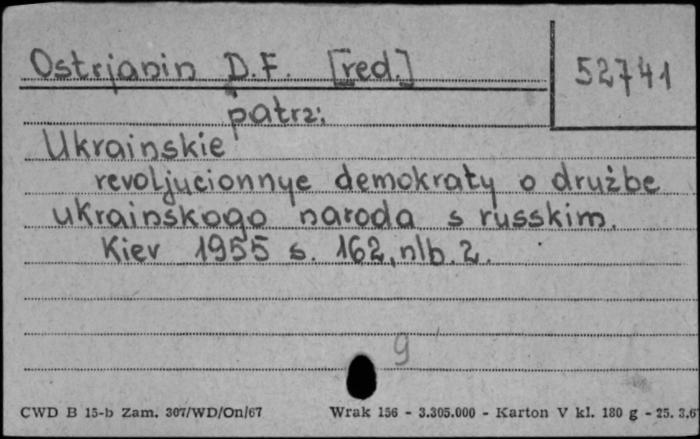 Ostrjanin D.F. [red.]
52741
patrz:
Ukrainskie
revoljucionnye demokraty o družbe
ukrainskogo naroda s russkim.
Kiev 1955 s. 162, nlb. 2.
9
CWD B 15-b Zam. 307/WD/On/67
Wrak 156 - 3.305.000 - Karton V kl. 180 g - 25. 3.6